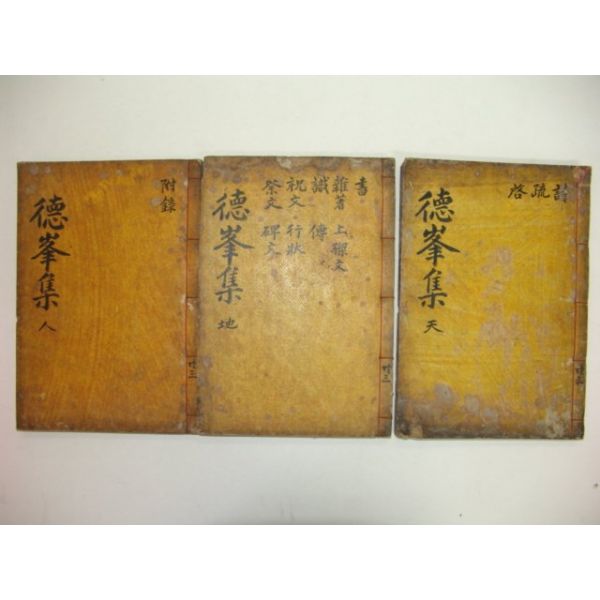 詩
疏
啓
德峯集 天
共三
書
雜著 上樑文
識 傳
祝文 行狀
祭文 碑文
德峯集 地
共三
附錄
德峯集 人